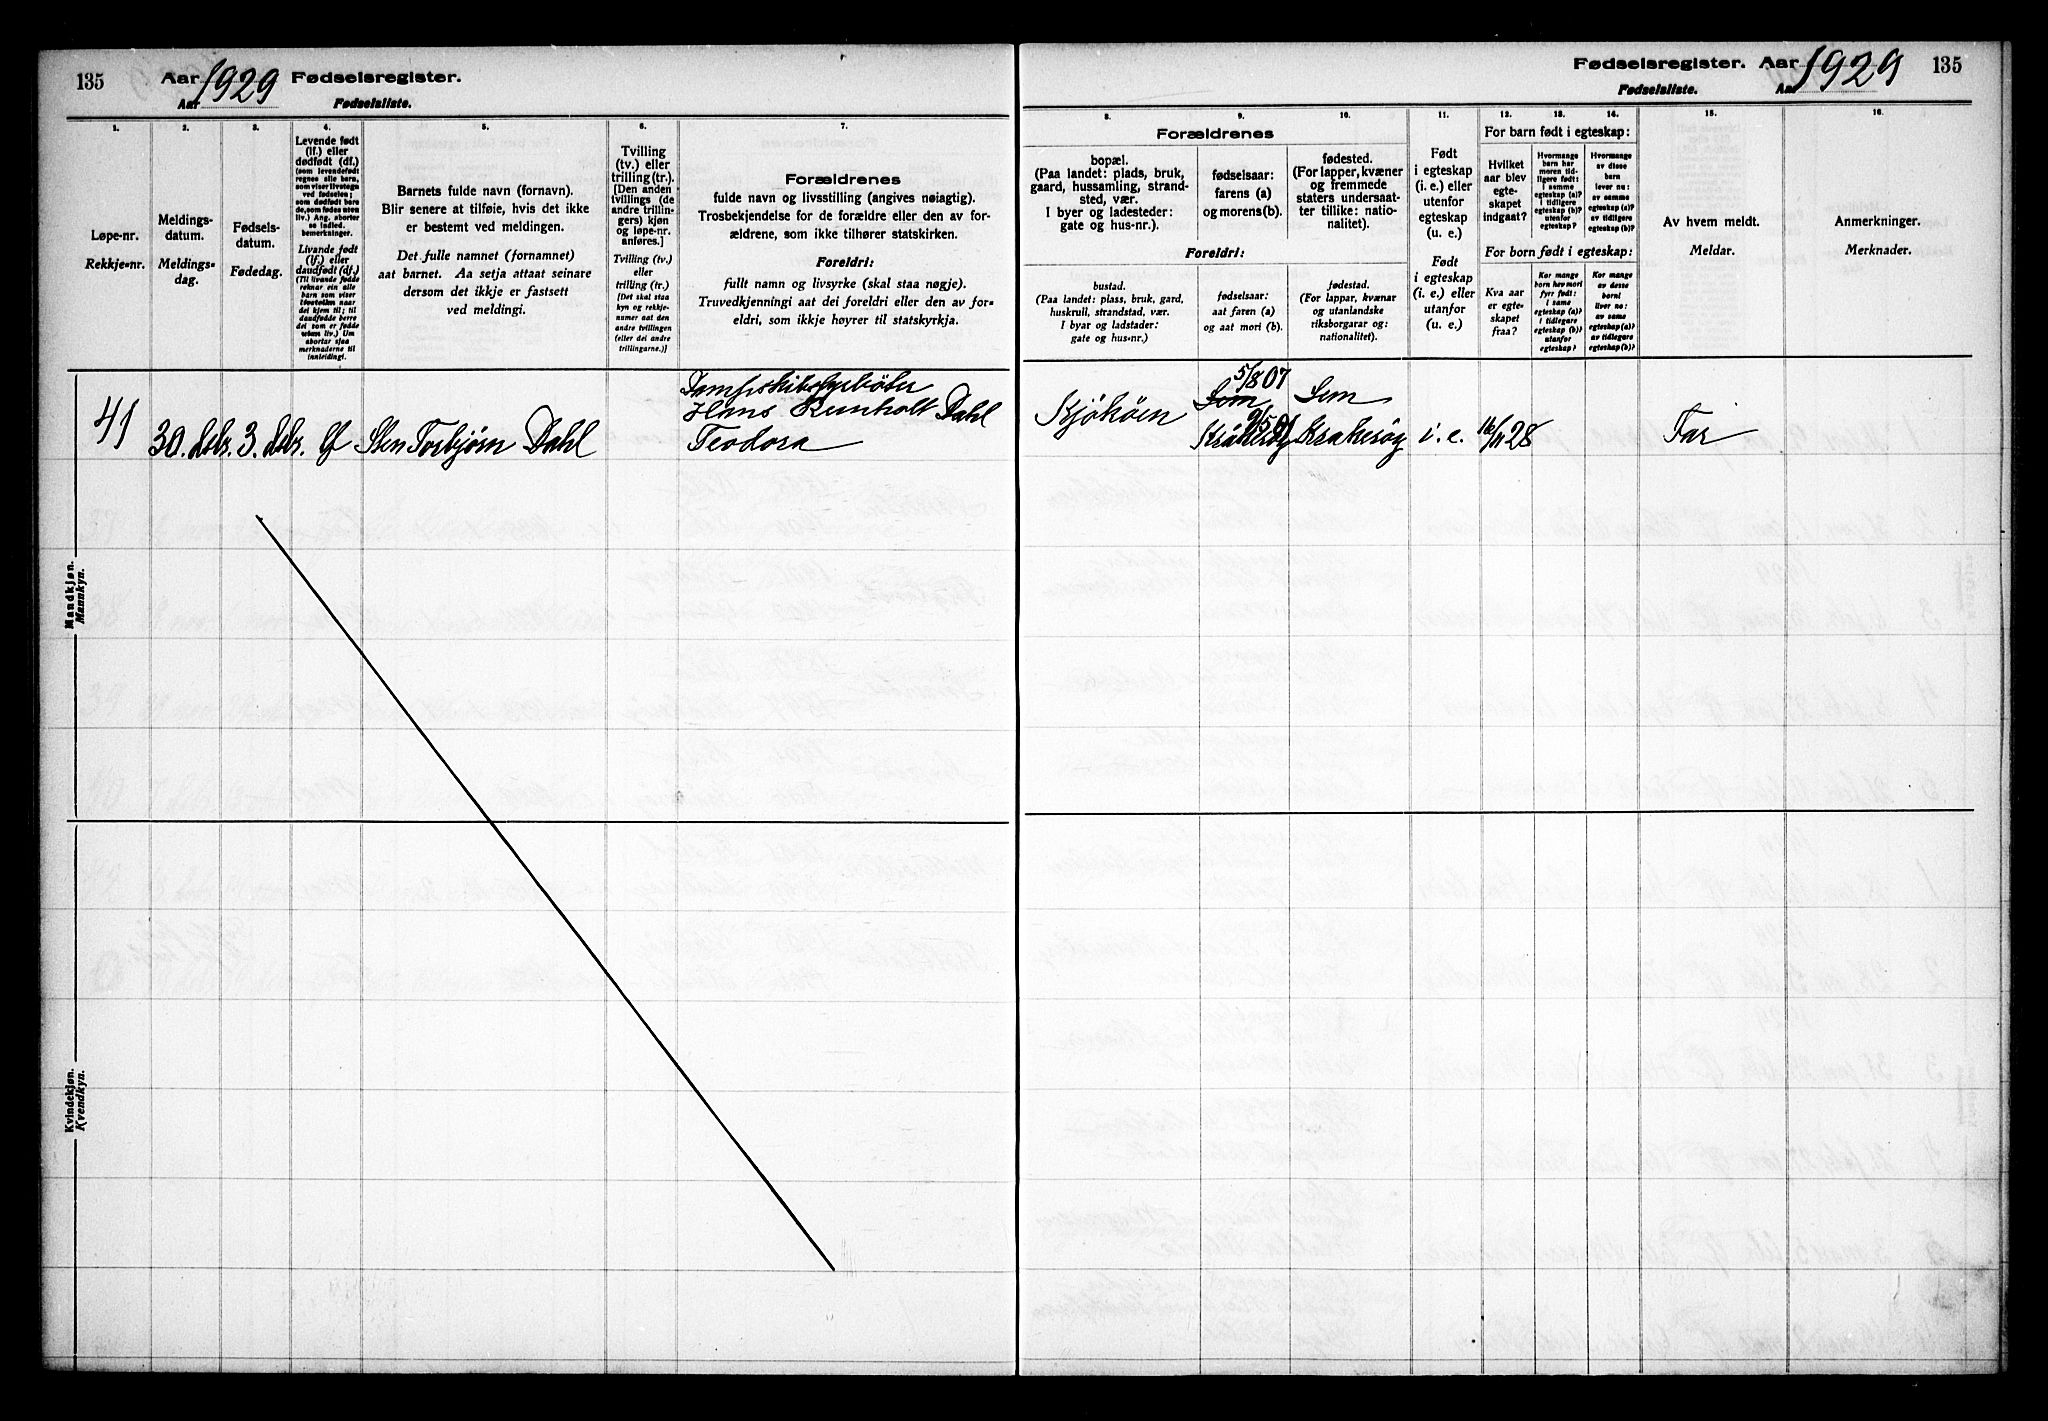 135 Aar 1929 Fødselsregister.
Aar Fødselsliste.
Fødselsregister. Aar 1929 135
Fødselsliste. Aar
1. 2. 3. 4. 5. 6. 7.
Løpe-nr.
Rekkje-nr.
Meldings-
datum.
Meldings-
dag.
Fødsels-
datum.
Fødedag.
Levende født
(lf.) eller
dødfødt (df.)
(som levendefødt
regnes alle barn,
som viser livstegn
ved fødselen;
som dødfødt bare
de, som fødes uten
liv.) Ang. aborter
se indled.
bemerkninger.
Livande født
(lf.) eller
daudfødt (df.)
(Til livande fødde
reknar ein alle
barn som viser
livsteikn naar
dei kjem til; til
daudfødde berre
dei som er fødde
utan liv.) Um
abortar sjaa
merknaderne til
innleidingi.
Barnets fulde navn (fornavn).
Blir senere at tilføie, hvis det ikke
er bestemt ved meldingen.
Det fulle namnet (fornamnet)
aat barnet. Aa setja attaat seinare
dersom det ikkje er fastsett
ved meldingi.
Tvilling
(tv.) eller
trilling (tr.).
[Den anden
tvillings (de
andre trillin-
gers) kjøn
og løpe-nr.
anføres.]
Tvilling (tv.)
eller
trilling (tr.)
[Det skal staa
kyn og rekkje-
numer aat den
andre tvillingen
(eller dei andre
trillingarne.)]
Forældrenes
fulde navn og livsstilling (angives nøiagtig).
Trosbekjendelse for de forældre eller den av for-
ældrene, som ikke tilhører statskirken.
Foreldri:
fullt namn og livsyrke (skal staa nøgje).
Truvedkjenningi aat dei foreldri eller den av for-
eldri, som ikkje høyrer til statskyrkja.
8. 9. 10. 11. 12. 13. 14. 15. 16.
Forældrenes
bopæl.
(Paa landet: plads, bruk,
gaard, hussamling, strand-
sted, vær.
I byer og ladesteder:
gate og hus-nr.).
fødselsaar:
farens (a)
og morens (b).
fødested.
(For lapper, kvæner
og fremmede
staters undersaat-
ter tillike: natio-
nalitet).
Foreldri:
bustad.
(Paa landet: plass, bruk, gard,
huskrull, strandstad, vær.
I byar og ladstader:
gate og hus-nr.)
fødselsaar:
aat faren (a)
og aat mori (b).
fødestad.
(For lappar, kvænar
og utanlandske
riksborgarar og:
nationalitet).
Født
i egteskap
(i. e.) eller
utenfor
egteskap
(u. e.)
Født
i egteskap
(i. e.) eller
utanfor
(u. e.)
For barn født i egteskap:
Hvilket
aar blev
egte-
skapet
indgaat?
Hvormange
barn har
moren tid-
ligere født:
i samme
egteskap (a)?
i tidligere
egteskap (b)?
utenfor
egteskap?
Hvormange
av disse
barn
lever nu:
av samme
egteskap (a)?
av tidligere
egteskap (b)?
For born født i egteskap:
Kva aar
er egte-
skapet
fraa?
Kor mange
born hev mori
fyrr født:
i same
egteskap (a)?
i tidlegare
egteskap (b)?
utanfor
egteskap?
Kor mange
av desse
borni
liver no:
av same
egteskap (a)?
av tidlegare
egteskap (b)?
Av hvem meldt.
Meldar.
Anmerkninger.
Merknader.
Mandkjøn.
Mannkyn.
41 30. debr. 3. debr. lf Sten Torbjørn Dahl
Dampskibsfyrbøter
Hans Reinholt Dahl
Teodora
Kjøkøen
5/8 07
Sem
Sem
9/5 01
Kråkerøy
Krakerøy
i. e. 16/11 28
Far
Kvindekjøn.
Kvendkyn.